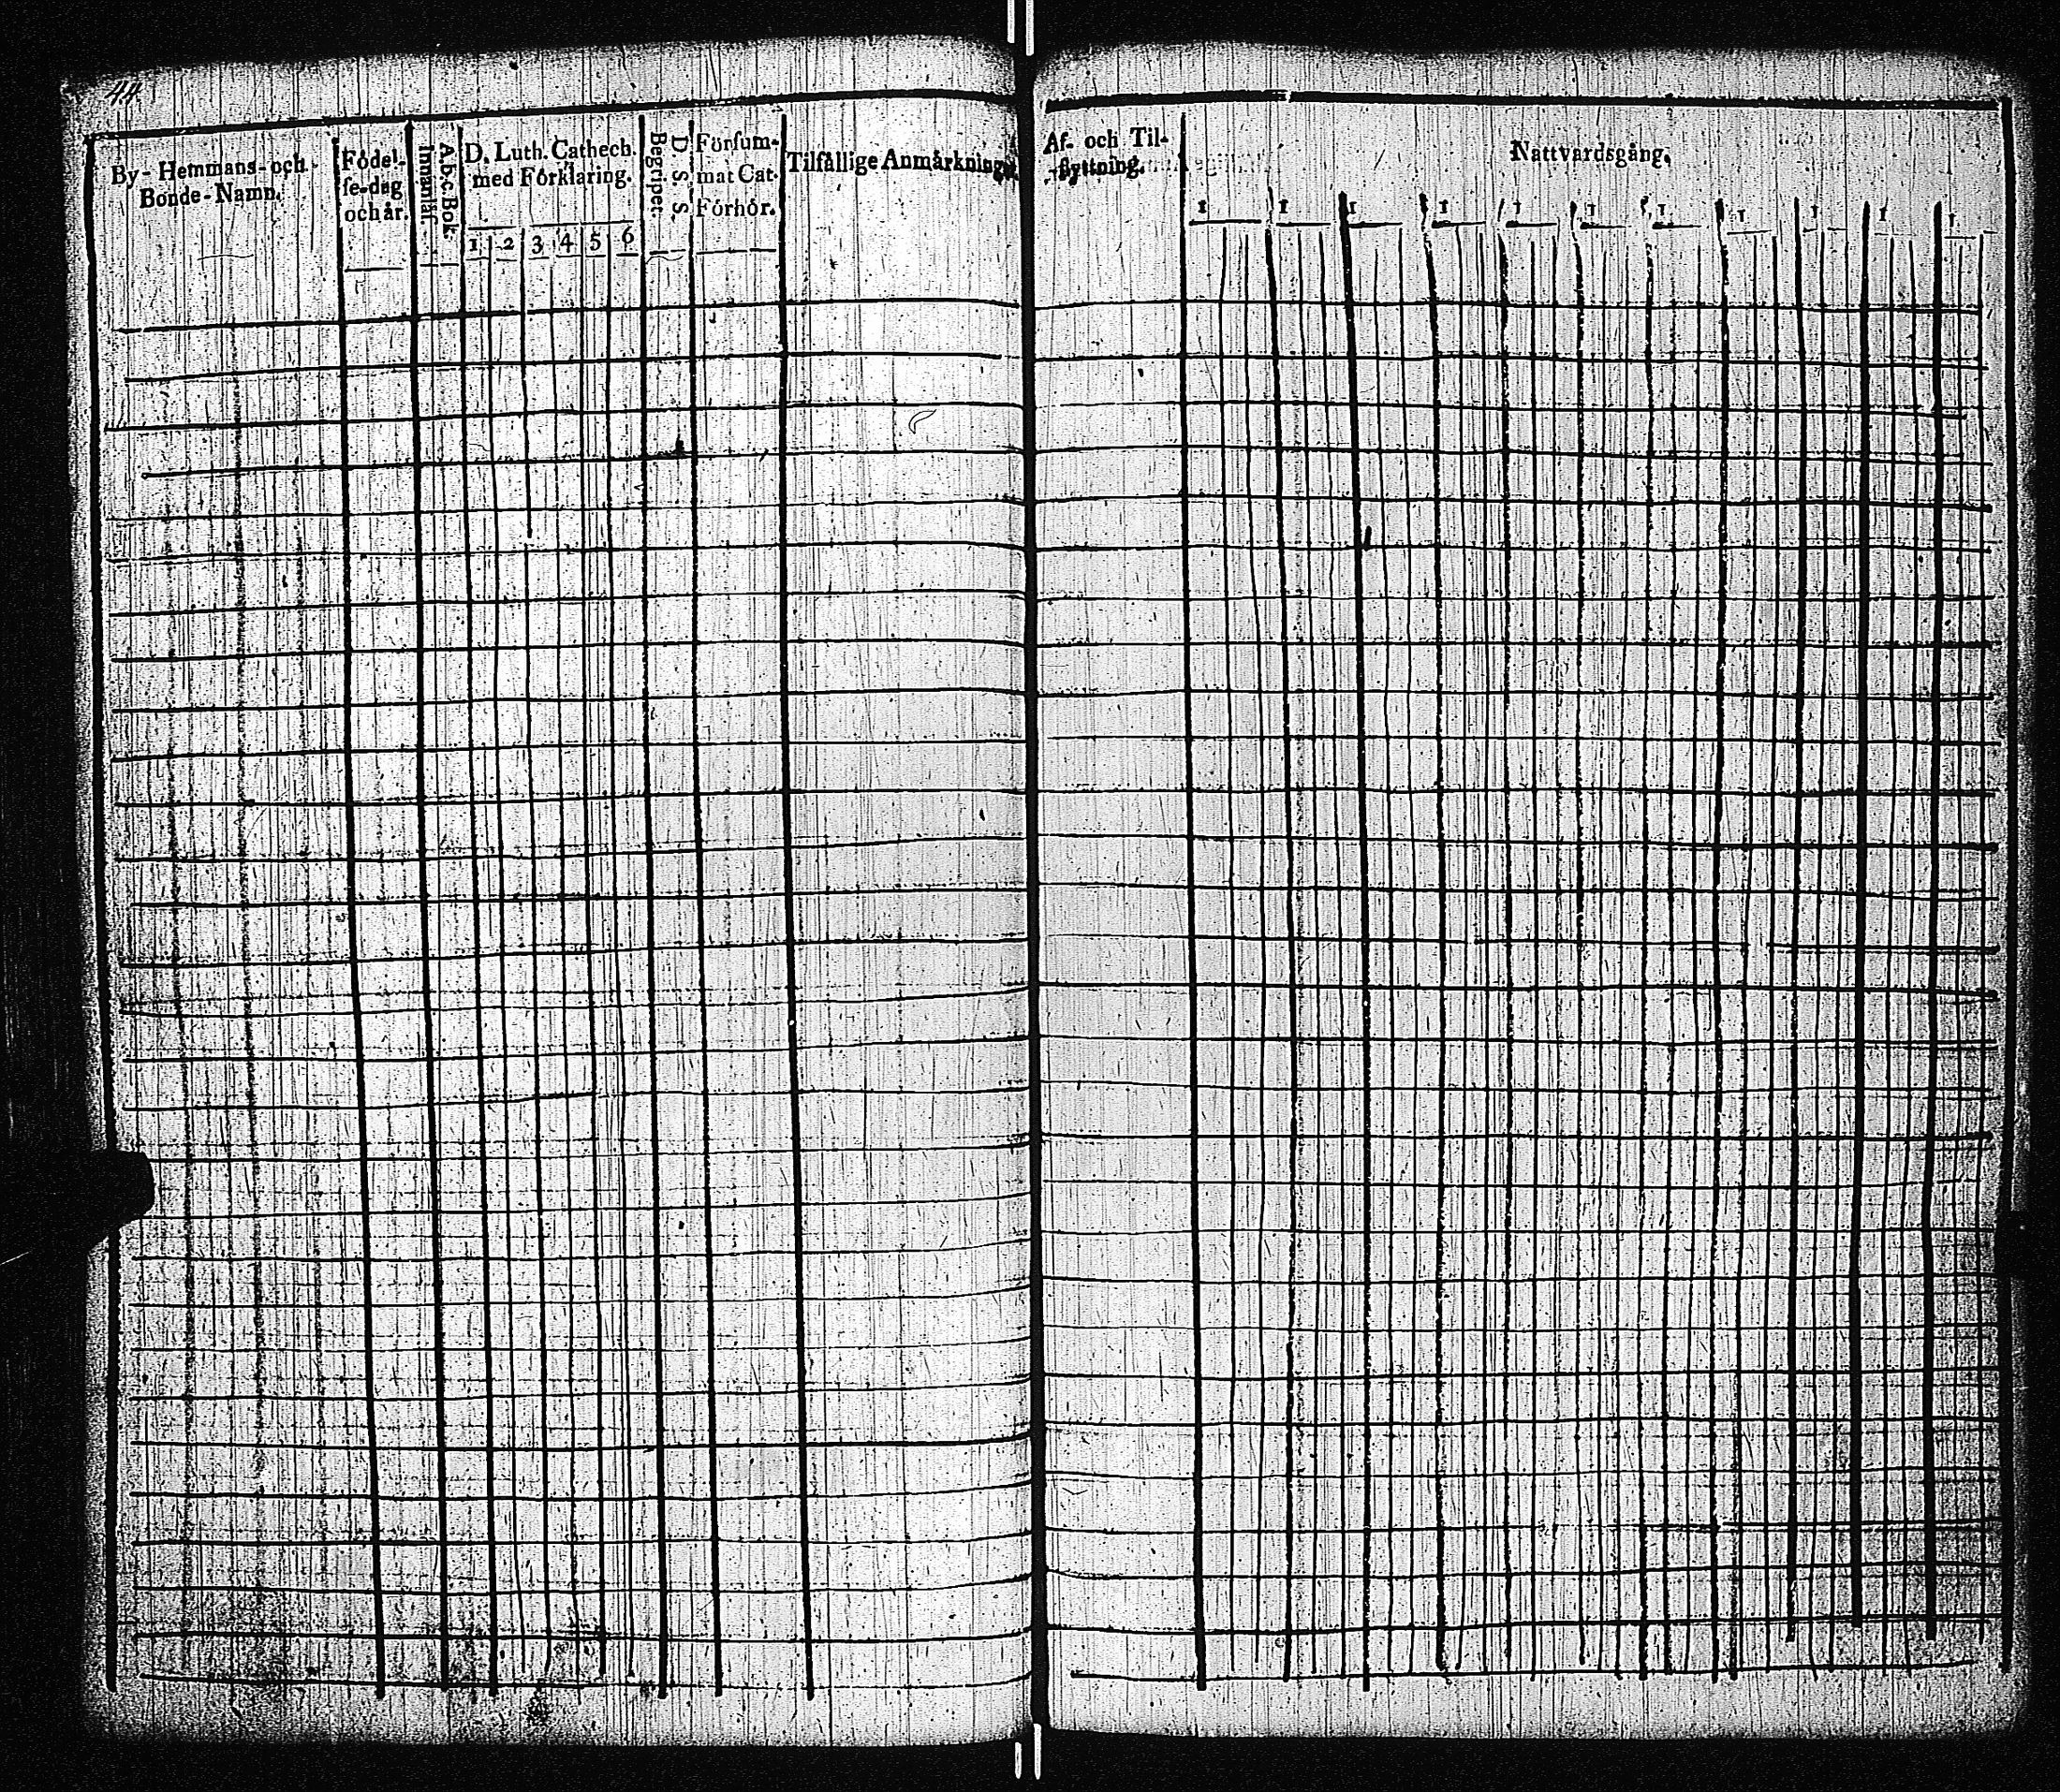 44
By- Hemmans- och
Bonde-Namn.
Födel-
se-dag
och år.
A.b.c. Bok
Innanläs.
D. Luth. Cathech.
med Förklaring.
1 2 3 4 5 6
D. S. S.
Begripet.
Försum-
mat Cat.
Förhör.
Tilfällige Anmärkningar.
Af- och Til-
flyttning.
Nattvardsgång.
1 1 1 1 1 1 1 1 1 1 1